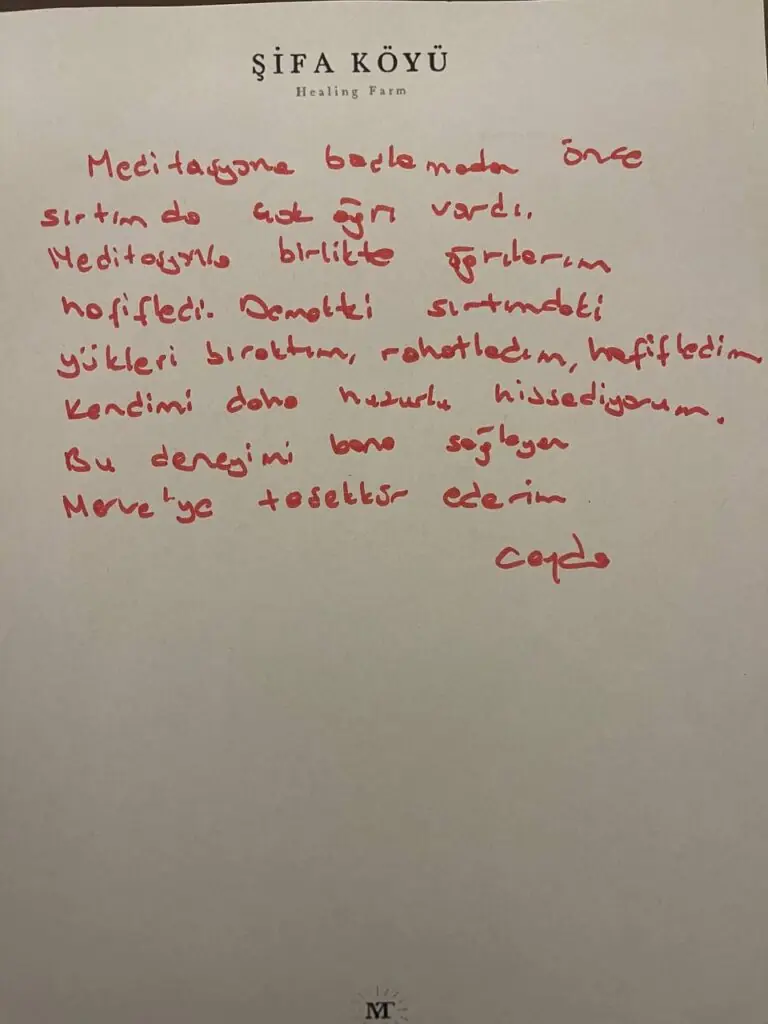 ŞİFA KÖYÜ
Healing Farm
Meditasyona başlamadan önce
sırtımda çok ağrı vardı.
Meditasyonla birlikte ağrılarım
hafifledi. Demekki sırtımdaki
yükleri bıraktım, rahatladım, hafifledim
Kendimi daha huzurlu hissediyorum.
Bu deneyimi bana sağlayan
Merve'ye teşekkür ederim
Cayda
MT